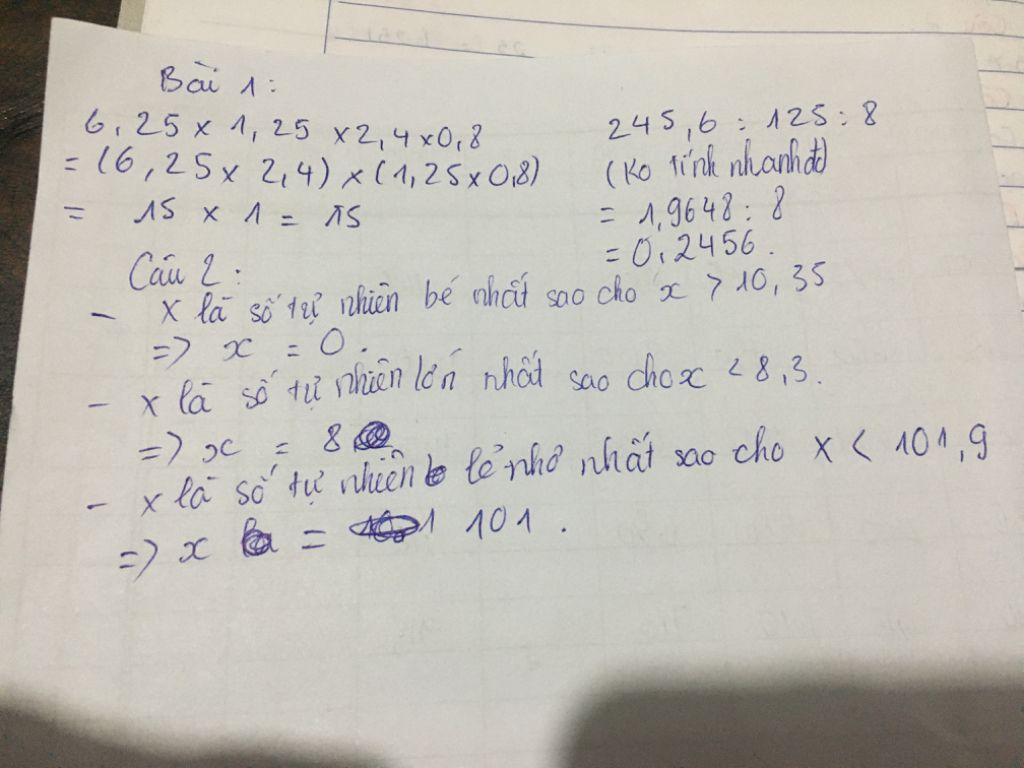 Bài 1:
6,25 x 1,25 x 2,4 x 0,8
= (6,25 x 2,4) x (1,25 x 0,8)
= 15 x 1 = 15
245,6 : 125 : 8
(Ko tính nhanh đc)
= 1,9648 : 8
= 0,2456.
Câu 2:
- x là số tự nhiên bé nhất sao cho x > 10,35
=> x = 0.
- x là số tự nhiên lớn nhất sao cho x < 8,3.
=> x = 8
- x là số tự nhiên lẻ nhỏ nhất sao cho x < 101,9
=> x = 101.